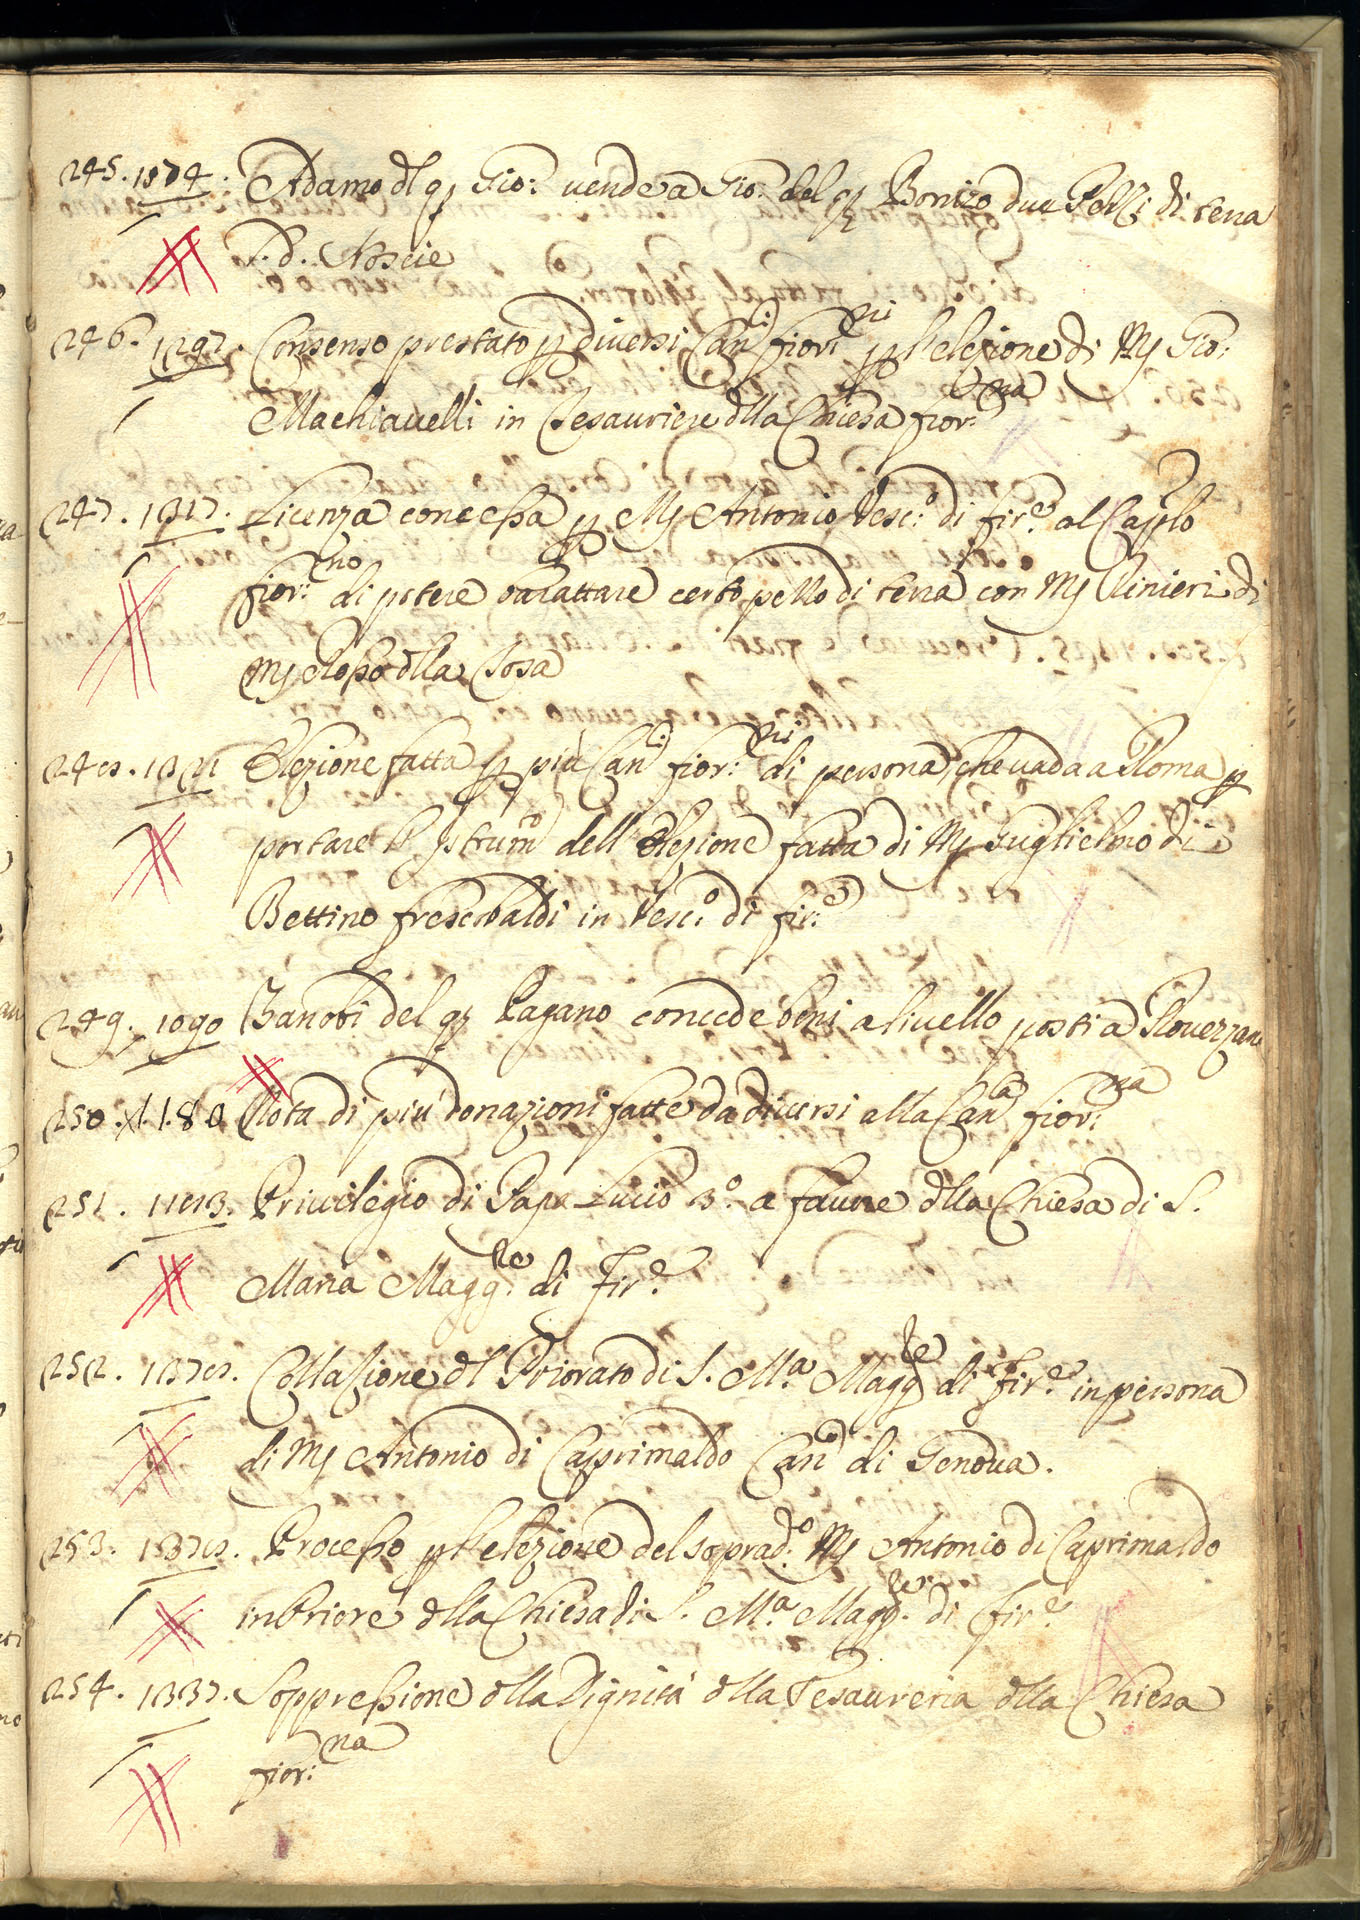 245. 1174. Adamo dl q. Gio: vende a Gio: del q. Bonizo due Pezzi di terra
. d. Ascie
246. 1297. Consenso prestato p diversi Can.ci fior.ni p l'elezione di Mſ Gio:
Machiavelli in Tesauriere dlla Chiesa fior.na
247. 1317. Licenza concessa p Mſ Antonio Vesc.o di Fir.e al Cap.lo
fior.no di potere barattare certo pezzo di terra con Mſ Rinieri di
Mſ Rosso dlla Tosa
248. 1321 Elezione fatta p più Can.ci fior.ni di persona, che vada a Roma p
portare l'Istrum.o dell'Elezione fatta di Mſ Guglielmo di
Bettino frescobaldi in Vesc.o di fir.e
249. 1090 Zanobi del q. Pagano concede beni a livello posti a Rovezzano
250. 1180 Nota di più donazioni fatte da diversi alla Can.ca fior.na
251. 1183. Privilegio di Papa Lucio 3.o a favore dlla Chiesa di S.
Maria Magg.re di Fir.e
252. 1378. Collazione dl Priorato di S. M.a Magg.re di Fir.e in persona
di Mſ Antonio di Caprimaldo Can.co di Genova.
253. 1378. Processo p l'elezione del soprad.o Mſ Antonio di Caprimaldo
in Priore dlla Chiesa di S. M.a Magg.re di Fir.e
254. 1337. Soppressione dlla Dignità dlla Tesaureria dlla Chiesa
fior.na